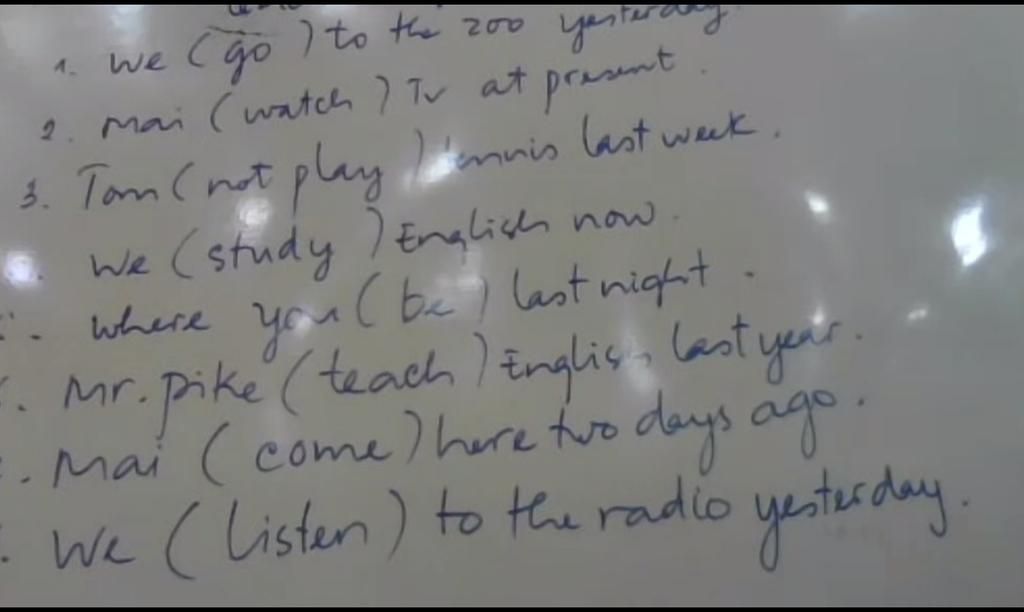 1. We (go) to the zoo yesterday.
2. Mai (watch) TV at present.
3. Tom (not play) tennis last week.
We (study) English now.
where you (be) last night.
Mr. Pike (teach) English last year.
Mai (come) here two days ago.
We (listen) to the radio yesterday.